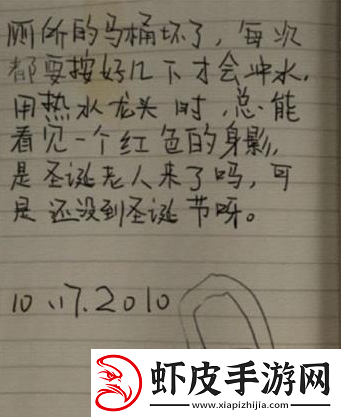 厕所的马桶坏了，每次
都要按好几下才会冲水.
用热水龙头时，总能
看见一个红色的身影,
是圣诞老人来了吗，可
是还没到圣诞节呀。
10.17.2010
虾皮手游网
www.xiapizhijia.com